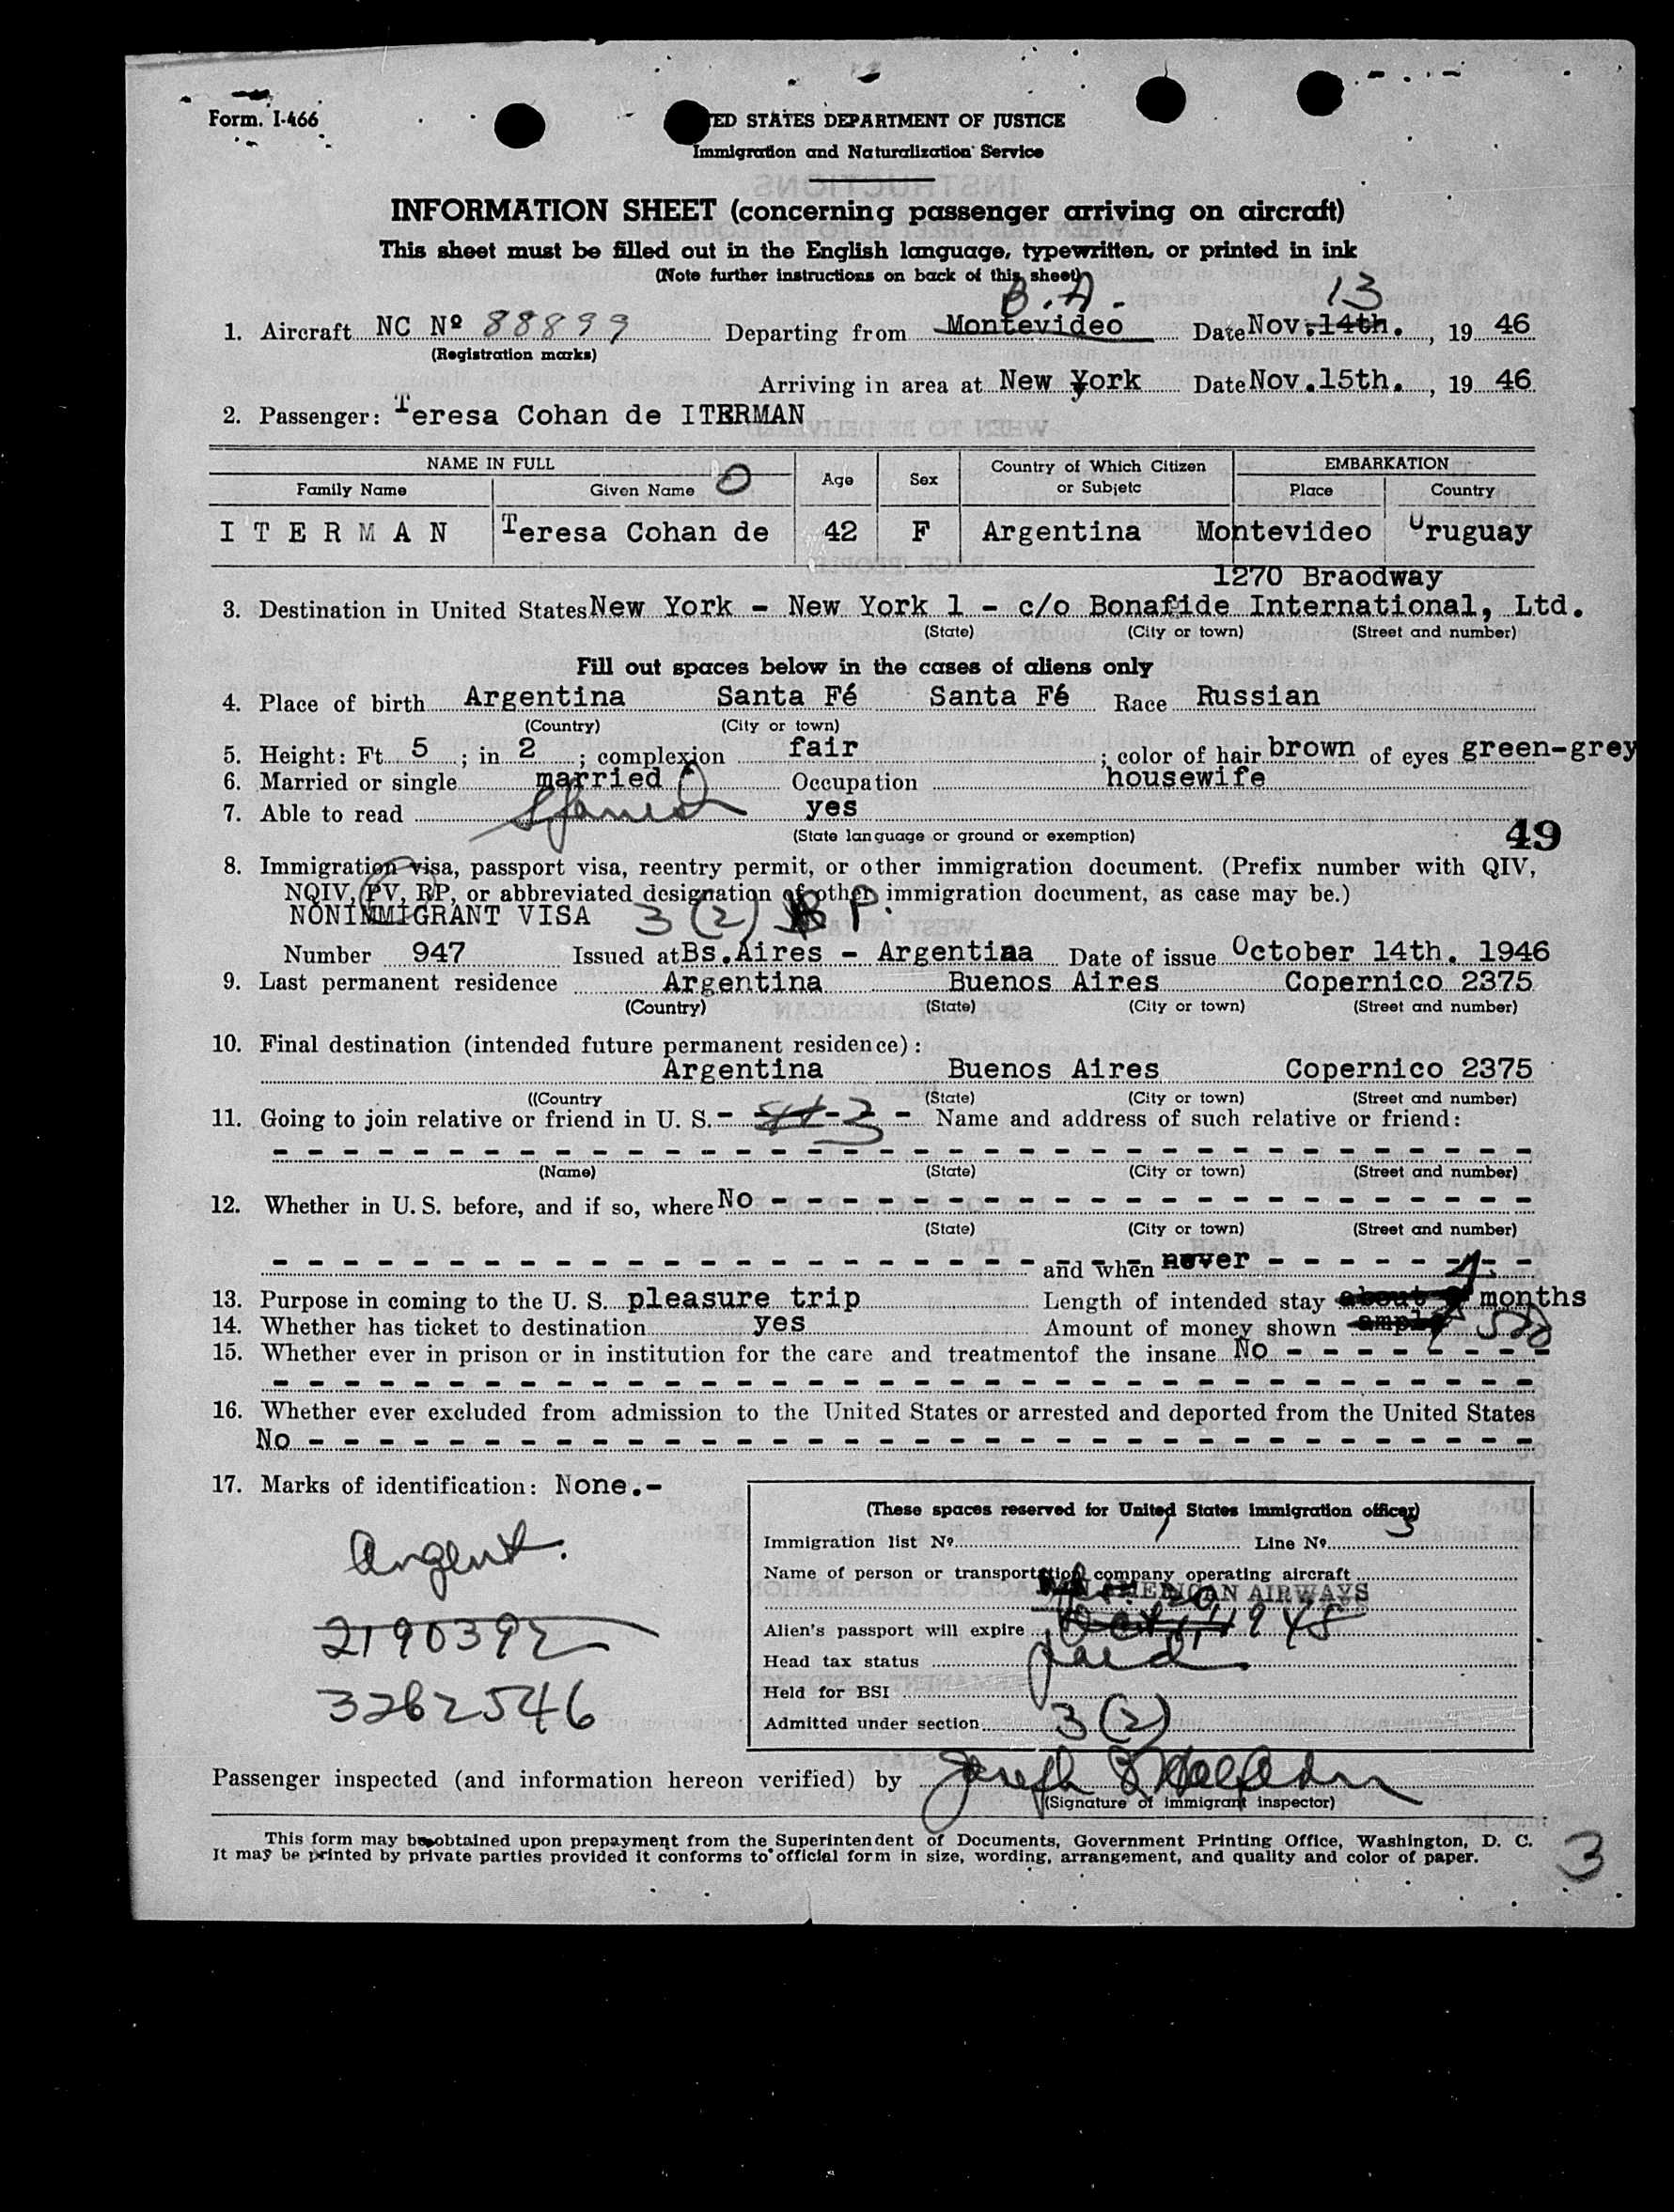 Form. I-466
ED STATES DEPARTMENT OF JUSTICE
Immigration and Naturalization Service
INFORMATION SHEET (concerning passenger arriving on aircraft)
This sheet must be filled out in the English language, typewritten, or printed in ink
(Note further instructions on back of this sheet)
B.A. 13
1. Aircraft NC Nº 88899 Departing from Montevideo Date Nov. 14th. , 19 46
(Registration marks)
Arriving in area at New York Date Nov.15th. , 19 46
2. Passenger: Teresa Cohan de ITERMAN
NAME IN FULL Age Sex Country of Which Citizen or Subjetc EMBARKATION
Family Name Given Name Place Country
I T E R M A N Teresa Cohan de 42 F Argentina Montevideo Uruguay
1270 Braodway
3. Destination in United States New York - New York 1 - c/o Bonafide International, Ltd.
(State) (City or town) (Street and number)
Fill out spaces below in the cases of aliens only
4. Place of birth Argentina Santa Fé Santa Fé Race Russian
(Country) (City or town)
5. Height: Ft. 5 ; in 2 ; complexion fair ; color of hair brown of eyes green-grey
6. Married or single married Occupation housewife
7. Able to read Spanish yes
(State language or ground or exemption)
49
8. Immigration visa, passport visa, reentry permit, or other immigration document. (Prefix number with QIV,
NQIV, PV, RP, or abbreviated designation of other immigration document, as case may be.)
NONIMMIGRANT VISA 3 (2) P.
Number 947 Issued at Bs.Aires - Argentina Date of issue October 14th. 1946
9. Last permanent residence Argentina Buenos Aires Copernico 2375
(Country) (State) (City or town) (Street and number)
10. Final destination (intended future permanent residence) :
Argentina Buenos Aires Copernico 2375
((Country (State) (City or town) (Street and number)
11. Going to join relative or friend in U. S. - - - Name and address of such relative or friend:
(Name) (State) (City or town) (Street and number)
12. Whether in U. S. before, and if so, where No - - - - - - - - - - - - - - - - - - - - - -
(State) (City or town) (Street and number)
- - - - - - - - - - - - - - - - - - - - - - and when never - - - - - - - -
13. Purpose in coming to the U. S. pleasure trip Length of intended stay about 4 months
14. Whether has ticket to destination yes Amount of money shown 500
15. Whether ever in prison or in institution for the care and treatmentof the insane No - - - - - - - -
16. Whether ever excluded from admission to the United States or arrested and deported from the United States
No - - - - - - - - - - - - - - - - - - - - - - - - - - - - - - - - - - -
17. Marks of identification: None.-
(These spaces reserved for United States immigration officer)
Immigration list Nº 1 Line Nº 3
Name of person or transportation company operating aircraft
AMERICAN AIRWAYS
Alien's passport will expire 1948
Head tax status paid
Held for BSI
Admitted under section 3 (2)
Argent.
2190392
3262546
Passenger inspected (and information hereon verified) by Joseph
(Signature of immigrant inspector)
This form may be obtained upon prepayment from the Superintendent of Documents, Government Printing Office, Washington, D. C.
It may be printed by private parties provided it conforms to official form in size, wording, arrangement, and quality and color of paper.
3